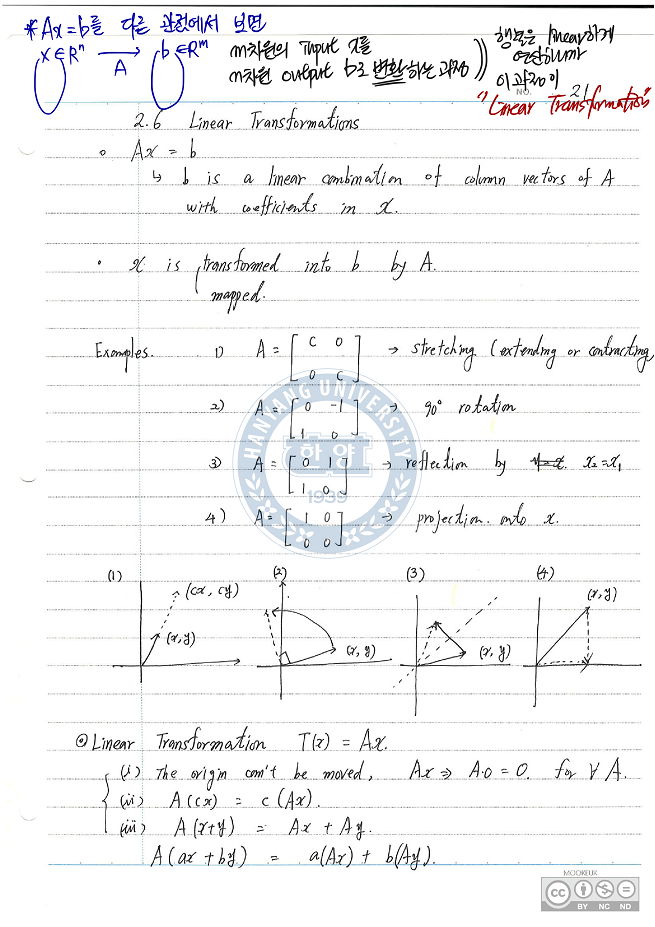 *Ax=b를 다른 관점에서 보면
x∈Rⁿ → b∈Rᵐ
A
n차원의 Input x를
m차원 output b로 변환하는 과정
행렬은 linear하게
연산하니까
이 과정이
"Linear Transformation"
NO. 21
2.6 Linear Transformations
∘ Ax = b
↳ b is a linear combination of column vectors of A
with coefficients in x.
• x is transformed into b by A.
mapped.
Examples. 1) A = [c 0; 0 c] → stretching (extending or contracting,
2) A = [0 -1; 1 0] → 90° rotation
3) A = [0 1; 1 0] → reflection by x₂=x₁
4) A = [1 0; 0 0] → projection. onto x.
HANYANG UNIVERSITY
한양
1939
(1) (2) (3) (4)
(cx, cy) (x,y)
(x,y) (x,y) (x,y)
⊙ Linear Transformation T(x) = Ax.
(i) The origin can't be moved, Ax ⇒ A·0 = 0. for ∀ A.
(ii) A(cx) = c(Ax).
(iii) A(x+y) = Ax + Ay.
A(ax + by) = a(Ax) + b(Ay).
MOOKEUK
cc BY NC ND